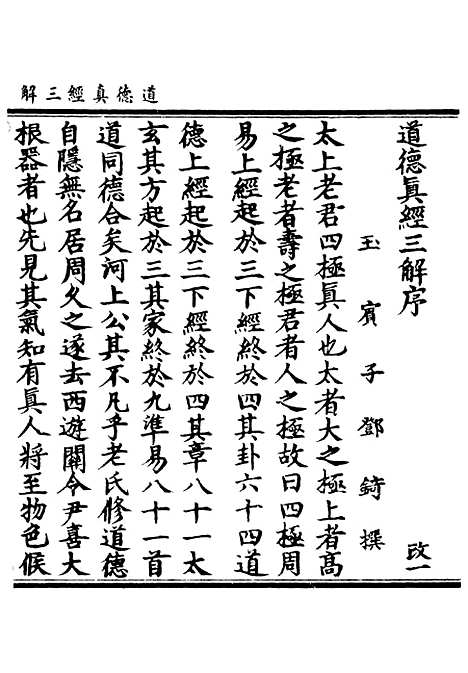 道德真經三解
道德眞經三解序 改一
玉賓子鄧錡撰
太上老君四極眞人也太者大之極上者髙
之極老者壽之極君者人之極故曰四極周
易上經起於三下經終於四其卦六十四道
德上經起於三下經終於四其章八十一太
玄其方起於三其家終於九準易八十一首
道同德合矣河上公其不凡乎老氏修道德
自隱無名居周久之遂去西遊關令尹喜大
根器者也先見其氣知有眞人將至物色候